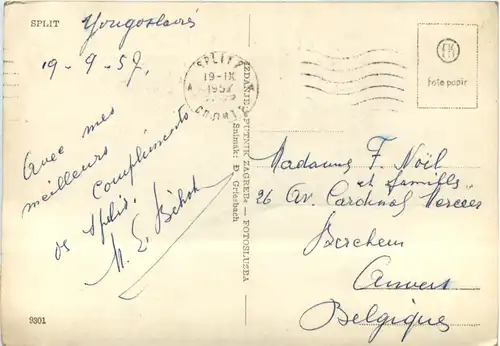 SPLIT
Yougoslavie
19-9-57.
Avec mes
meilleurs
compliments
de Split.
SPLIT 2
19-IX
1957
FK
Foto papir
IZDANJE: »PUTNIK ZAGREB« — FOTOSLUŽBA
Snimak: Đ. Griesbach
Madame F. Noël
et famille
26 Av. Cardinal Mercier
Berchem
Anvers
Belgique
9301